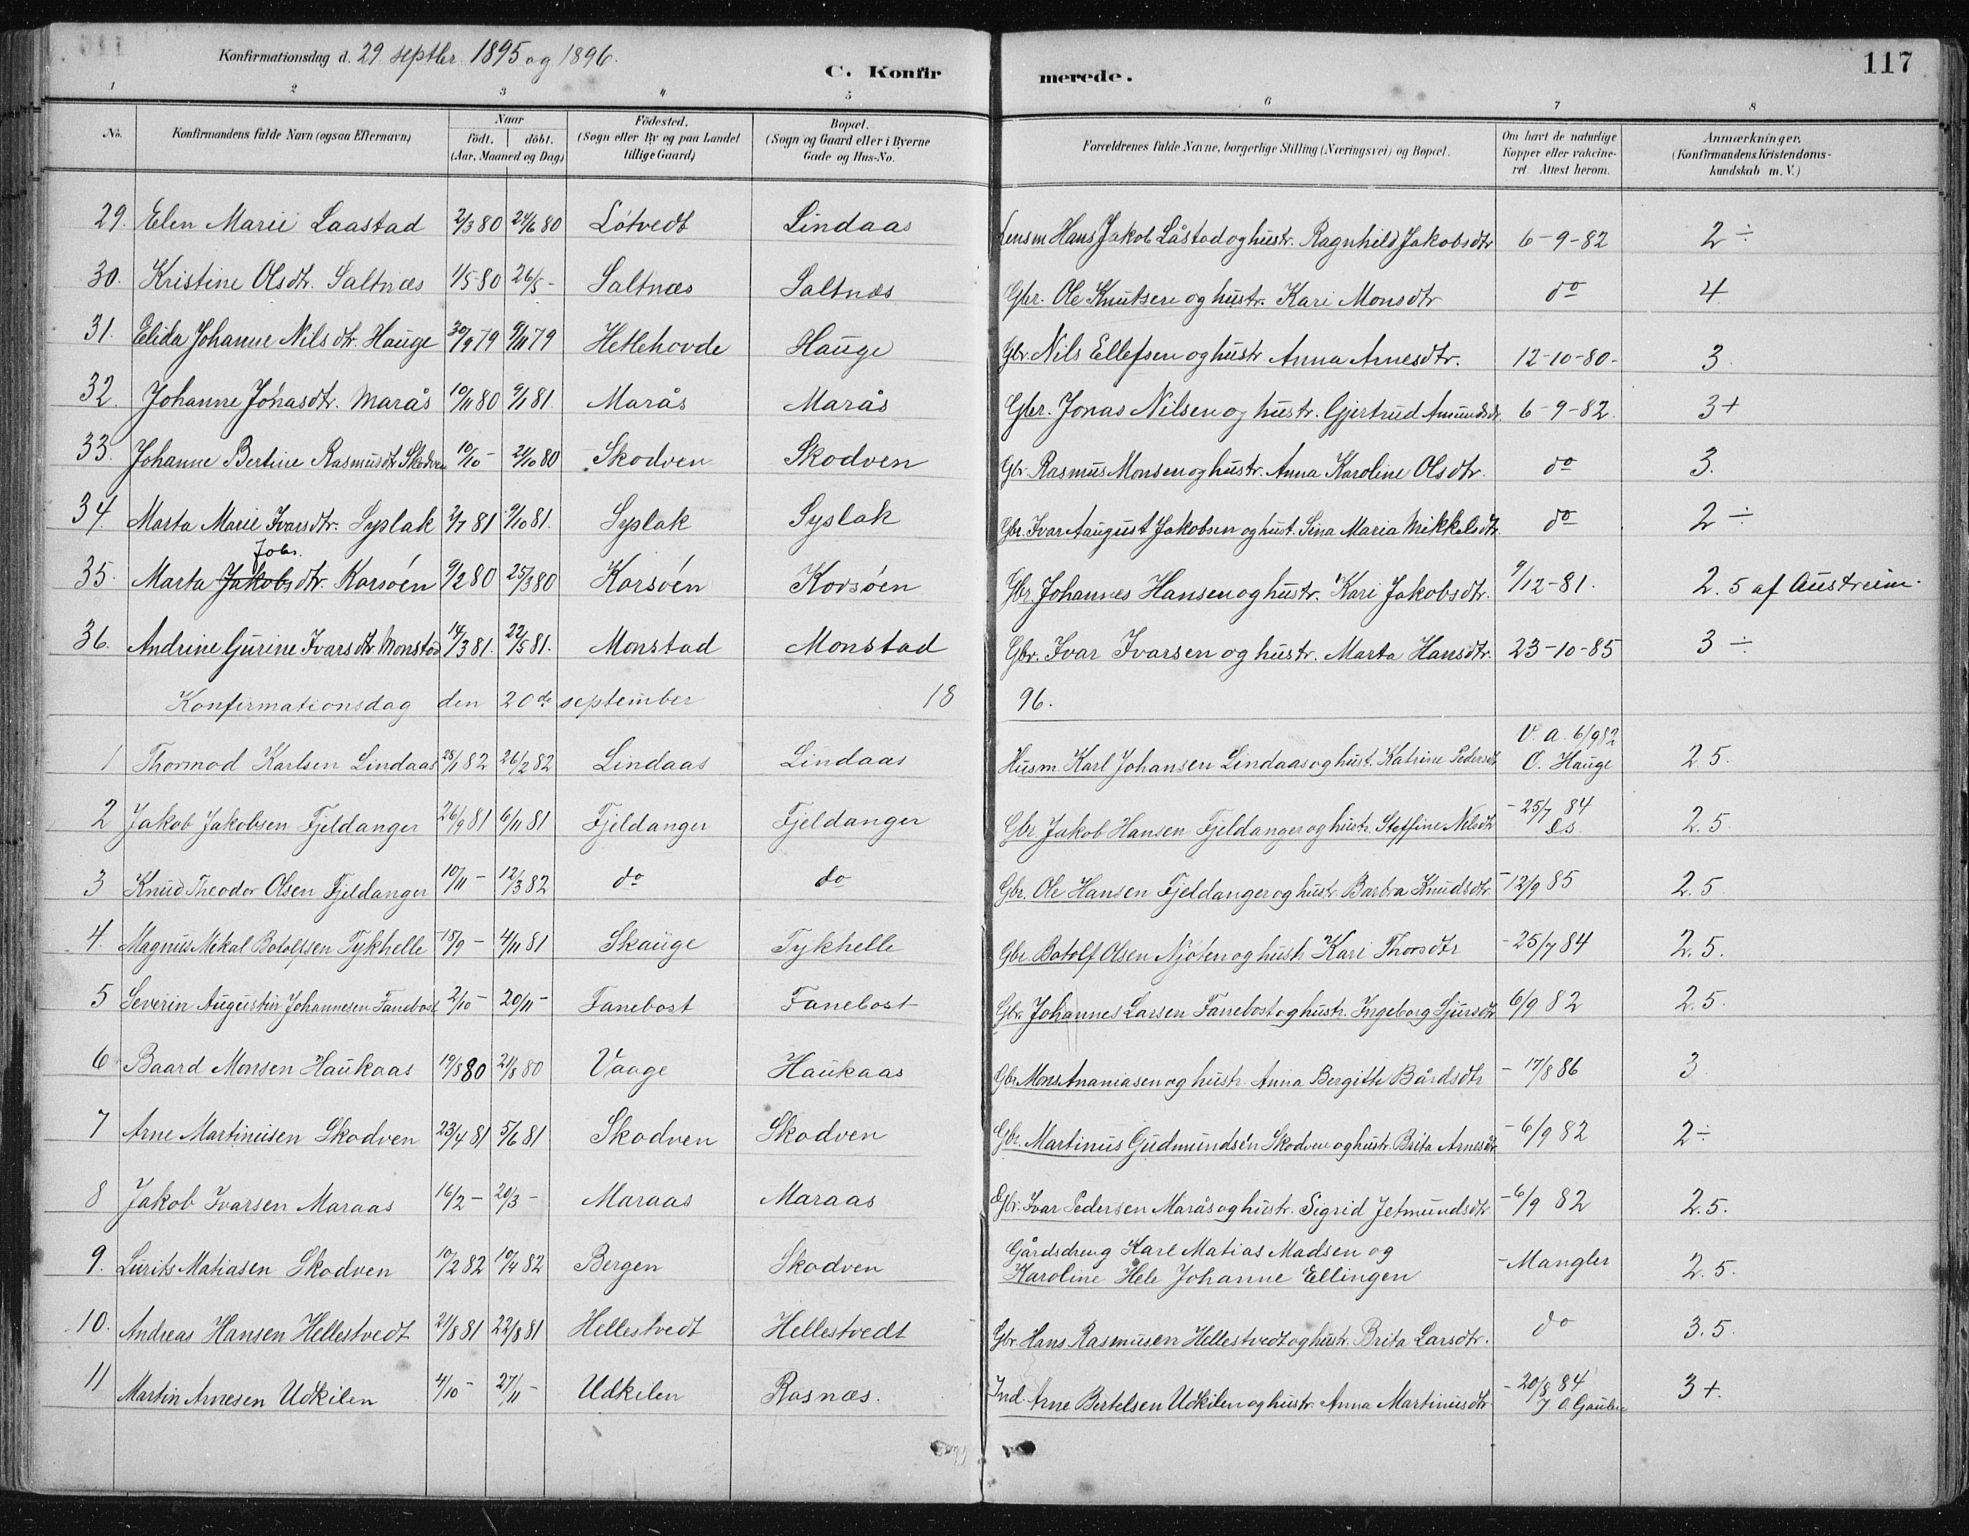 Konfirmationsdag d. 29 septbr. 1895 og 1896.
C. Konfirmerede.
117
1 2 3 4 5 6 7 8
No. | Konfirmandens fulde Navn (ogsaa Efternavn) | Naar født. døbt. (Aar, Maaned og Dag) | Fødested. (Sogn eller By og paa Landet tillige Gaard) | Bopæl. (Sogn og Gaard eller i Byerne Gade og Hus-No. | Forældrenes fulde Navne, borgerlige Stilling (Næringsvei) og Bopæl. | Om havt de naturlige Kopper eller vakcineret. Attest herom. | Anmærkninger. (Konfirmandens Kristendomskundskab m. V.)
29. Elen Marie Laastad 2/3 80 24/6 80 Lötvedt Lindaas Lensm Hans Jakob Låstad og hustr. Ragnhild Jakobsdtr 6-9-82 2 ÷
30. Kristine Olsdtr. Saltnæs 1/5 80 26/5 - Saltnæs Saltnæs Gbr. Ole Knutsen og hustr. Kari Monsdtr do 4
31. Elida Johanne Nilsdtr. Hauge 30/9 79 9/11 79 Hetlehovde Hauge Gbr. Nils Ellefsen og hustr Anna Arnesdtr. 12-10-80- 3
32. Johanne Jonasdtr. Marås 10/11 80 9/1 81 Marås Marås Gbr. Jonas Nilsen og hustr. Gjertrud Amundsdtr. 6-9-82. 3+
33. Johanne Bertine Rasmusdtr Skodven 10/10 - 24/10 80 Skodven Skodven Gbr. Rasmus Monsen og hustr. Anna Karoline Olsdtr. do 3.
34. Marta Marie Ivarsdtr. Syslak 2/7 81 9/10 81. Syslak Syslak Gbr. Ivar Aaugust Jakobsen og hust. Sina Maria Mikkelsdtr. do 2 ÷
Johs.
35. Marta Jakobsdtr. Korsöen 9/2 80 25/3 80 Korsöen Korsöen Gbr. Johannes Hansen og hustr. Kari Jakobsdtr. 9/12-81. 2.5 af Austreim.
36. Andrine Gurine Ivarsdtr Monstad 14/3 81. 22/5 81. Monstad Monstad Gbr. Ivar Ivarsen og hustr. Marta Hansdtr. 23-10-85 3 ÷
Konfirmationsdag den 20de september 1896.
1 Thormod Karlsen Lindaas 28/1 82 26/2 82 Lindaas Lindaas Husm. Karl Johansen Lindaas og hust. Katrine Pedersdtr V. a. 6/9 82 O. Hauge 2 5.
2 Jakob Jakobsen Fjeldanger 26/9 81 6/11 81 Fjeldanger Fjeldanger Gbr Jakob Hansen Fjeldanger og hustr. Steffine Nilsdtr - 25/7 84 Ds. 2.5.
3 Knud Theodor Olsen Fjeldanger 10/11 - 12/3 82 do do Gbr. Ole Hansen Fjeldanger og hustr. Barbra Knudsdtr - 12/9 85 2.5.
4. Magnus Mekal Botolfsen Tykhelle 18/9 - 4/11 81 Skauge Tykhelle Gbr Botolf Olsen Njöten og hustr Kari Thorsdtr - 25/7 84 2.5.
5 Severin Augustin Johannesen Fanebost 2/10 - 20/11 - Fanebost Fanebost Gbr. Johannes Larsen Fanebost og hustr. Ingeborg Sjursdtr 6/9 82 2.5.
6 Baard Monsen Haukaas 19/8 80 21/8 80 Vaage Haukaas Gbr Mons Ananiasen og hustr. Anna Bergith Bårdsdtr - 17/8 86 3
7 Arne Martinusen Skodven 23/4 81 5/6 81 Skodven Skodven Gbr. Martinus Gudmundsen Skodven og hustr. Brita Arnesdtr - 6/9 82 2÷
8 Jakob Ivarsen Maraas 16/2 - 20/3 - Maraas Maraas Gbr. Ivar Pedersen Marås og hustr. Sigrid Jetmundsdtr. - 6/9 82 2.5.
9. Lurits Matiasen Skodven 10/2 82 10/4 82 Bergen Skodven Gårdsdreng Karl Matias Madsen og Karoline Hele Johanne Ellingen - Mangler 2.5.
10. Andreas Hansen Hellestvedt 21/8 81 22/8 81 Hellestvedt Hellestvedt Gbr. Hans Rasmusen Hellestvedt og hustr. Brita Larsdtr. do 3.5.
11 Martin Arnesen Udkilen 4/10 - 27/11 - Udkilen Rosnæs. Ind. Arne Bertelsen Udkilen og hustr. Anna Martinusdtr - 20/8 84 J O. 3+.